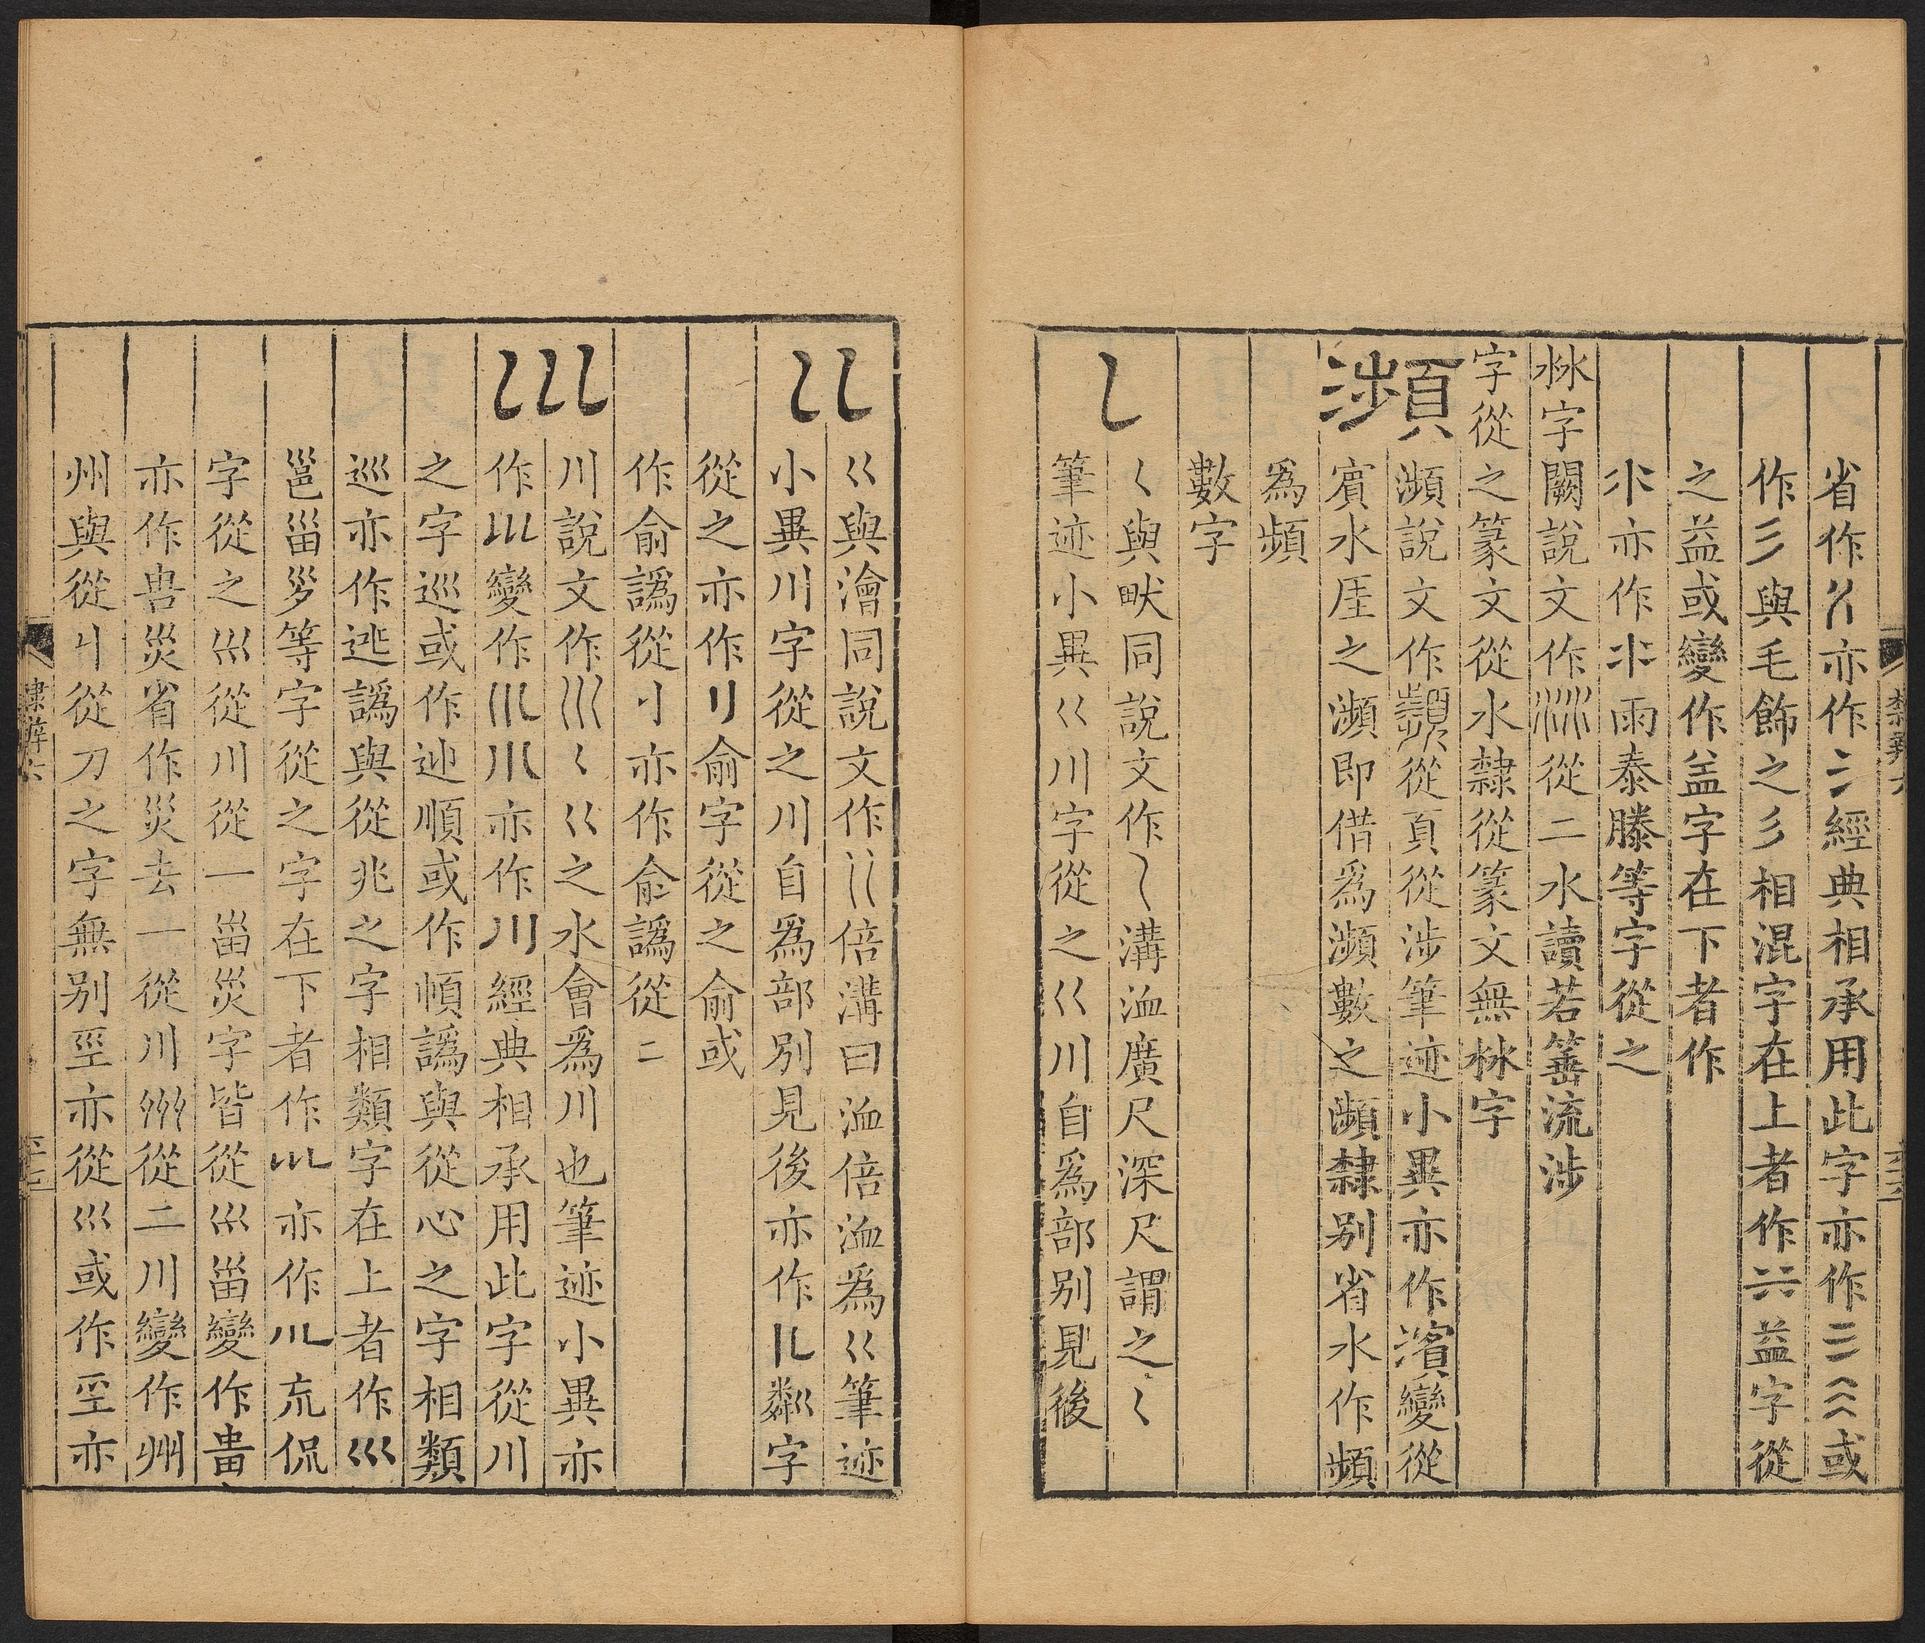 省作亦作經典相承用此字亦作三或
作彡與毛飾之彡相混字在上者作益字從
之益或變作盆字在下者作
氺亦作雨泰滕等字從之
沝字闕說文作從二水讀若箠流涉
字從之篆文從水隸從篆文無沝字
瀕
瀕說文作從頁從涉筆迹小異亦作濱變從
賓水厓之瀕即借爲瀕數之瀕隸别省水作頻
爲頻
數字
𠃊
𡿨與畎同說文作𡿨溝洫廣尺深尺謂之𡿨
筆迹小異巜川字從之巜川自爲部别見後
巜
巜與澮同說文作巜倍溝曰洫倍洫爲巜筆迹
小異川字從之川自爲部別見後亦作粼字
從之亦作刂俞字從之俞或
作俞譌從刂亦作俞譌從二
巛
川說文作巛𡿨巜之水會爲川也筆迹小異亦
作巛變作川亦作川經典相承用此字從川
之字巡或作巡順或作順譌與從心之字相類
巡亦作逃譌與從兆之字相類字在上者作巛
邕甾等字從之字在下者作亦作㐬侃
字從之巛從川從一甾災字皆從巛甾變作
亦作災省作災去一從川州從二川變作州
州與從刂從刀之字無别巠亦從巛或作巠亦
隸辨六